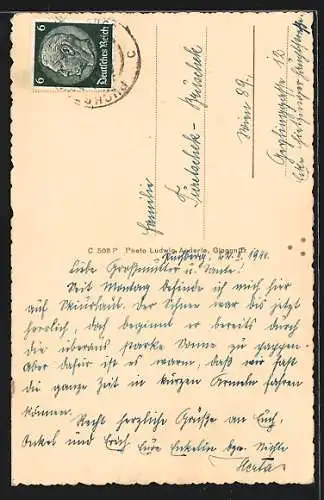 6 6
Deutsches Reich
PUCHBERG
c
Familie
Turetschek-
Wien 89.
13
C 508 P Photo Ludwig Anderle, Gloggnitz
Puchberg, 1941.
Liebe Großmutter u. Tante!
Seit Montag befinde ich mich hier
auf Skiurlaub. Der Schnee war bis jetzt
herrlich, doch beginnt er bereits durch
die überaus starke Sonne zu pappen.
Aber dafür ist es warm, daß wir fast
die ganze Zeit in kurzen Ärmeln fahren
können.
Recht herzliche Grüße an Euch,
Onkel und Erich Eure Enkelin bzw. Nichte
Herta